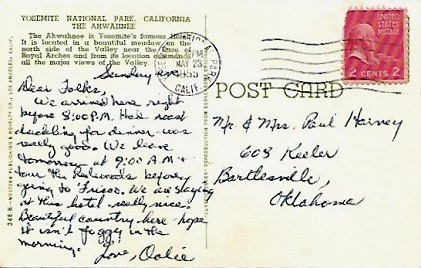 YOSEMITE NATIONAL PARK, CALIFORNIA
THE AHWAHNEE
The Ahwahnee is Yosemite's famous
It is located in a beautiful meadow on the
north side of the Valley near the base of
Royal Arches and from its location commands
all the major views of the Valley.
Sunday
Dear Folks,
We arrived here right
before 8:00 P.M. Had roast
duckling for dinner - was
really good. We leave
tomorrow at 9:00 A.M &
tour the Redwoods before
going to Frisco. We are staying
at this hotel really nice.
Beautiful country here - hope
it isn't foggy in the
morning.
Love,
PM
MAY 23
1955
CALIF.
UNITED STATES POSTAGE
2 CENTS 2
POST CARD
Mr & Mrs. Paul Harvey
603 Keeler
Bartlesville,
Oklahoma